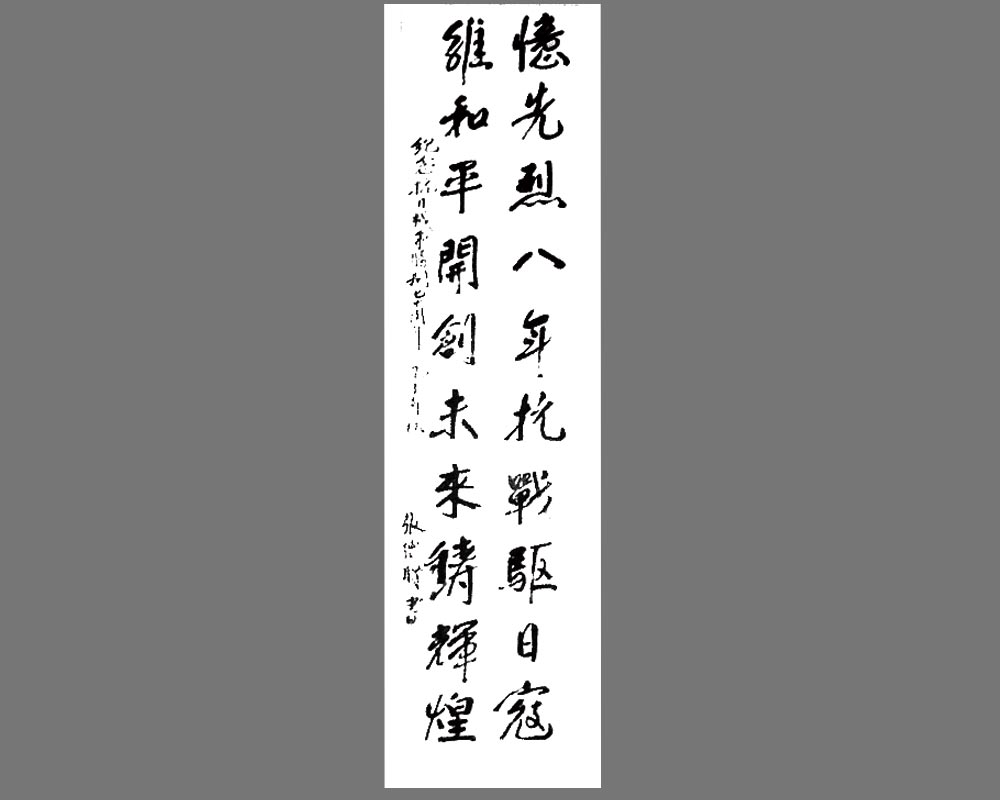 憶先烈八年抗戰駆日寇
維和平開創未來鑄輝煌
紀念抗日戰爭勝利七十周年
書